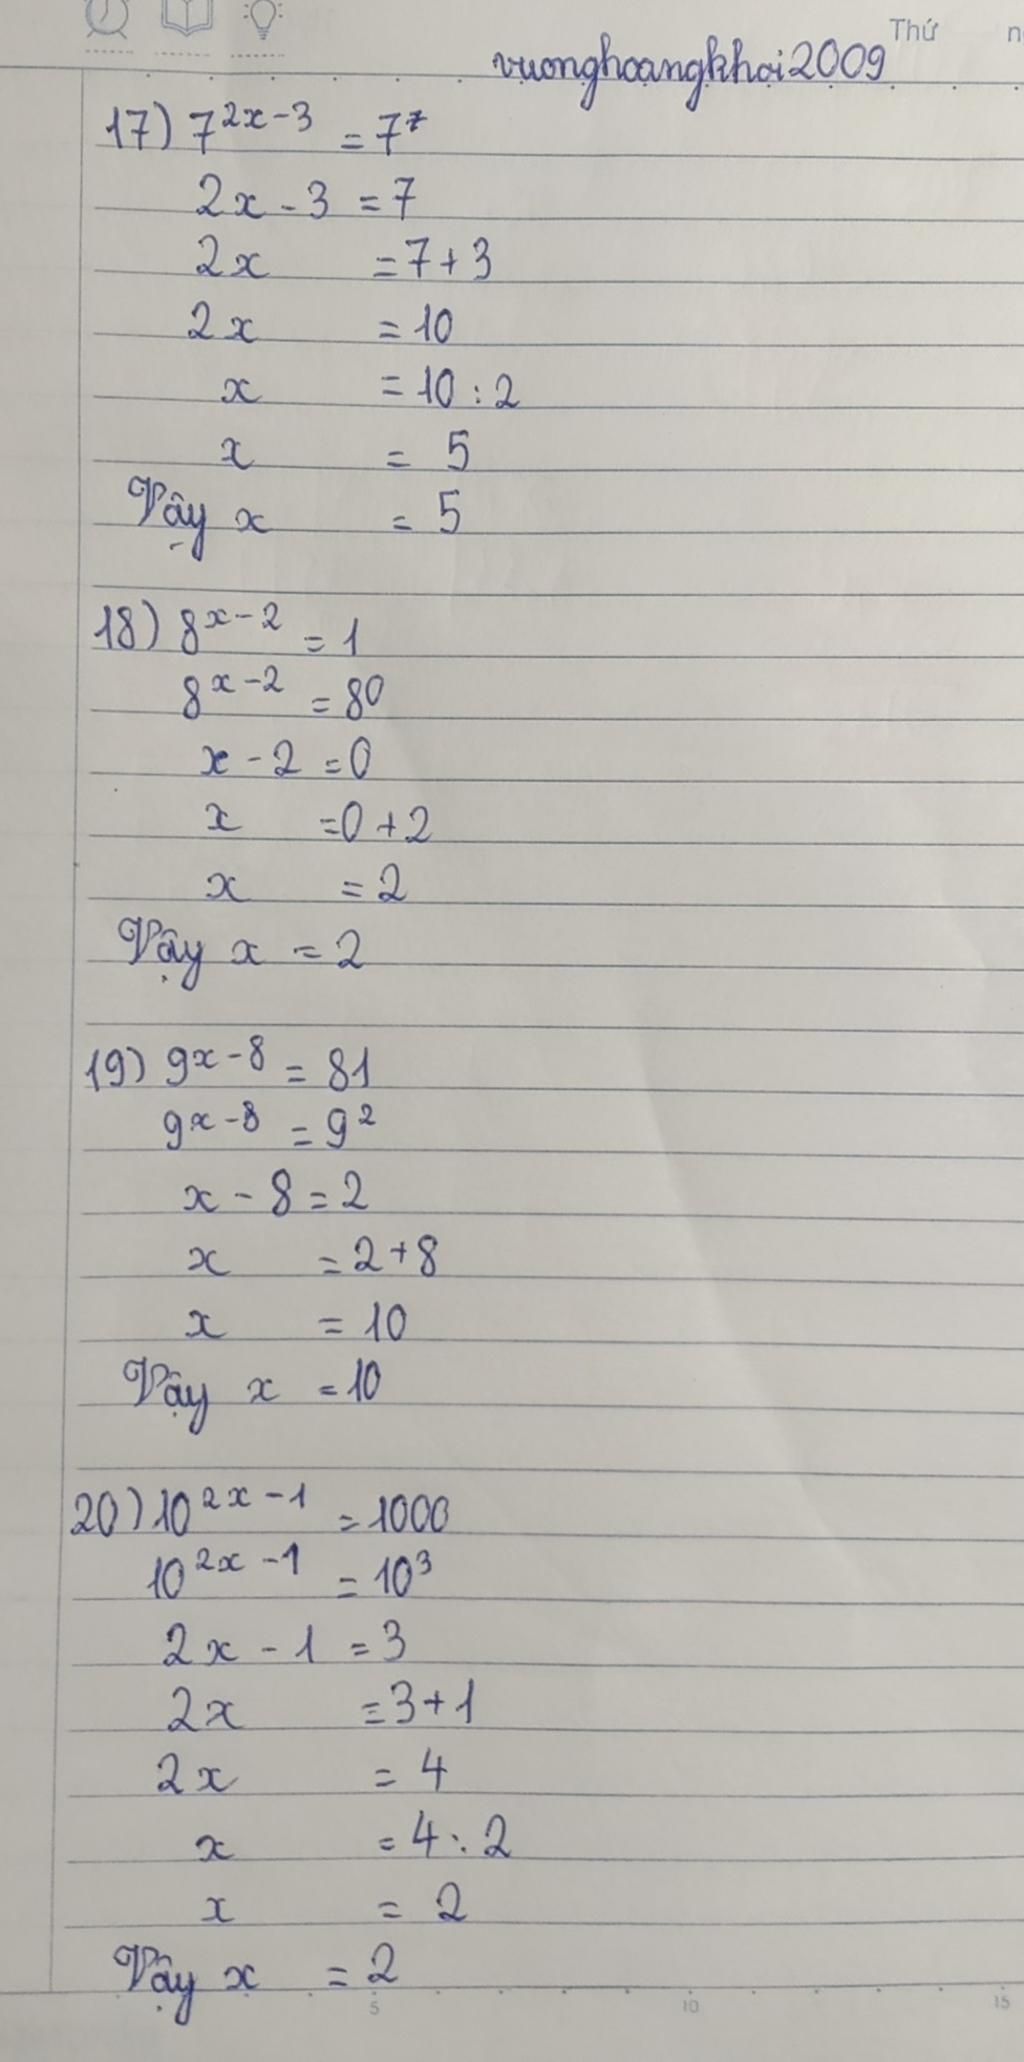 Thứ
vuonghoangkhoi2009
17) 7^{2x-3} = 7^7
2x - 3 = 7
2x = 7 + 3
2x = 10
x = 10 : 2
x = 5
Vậy x = 5
18) 8^{x-2} = 1
8^{x-2} = 8^0
x - 2 = 0
x = 0 + 2
x = 2
Vậy x = 2
19) 9^{x-8} = 81
9^{x-8} = 9^2
x - 8 = 2
x = 2 + 8
x = 10
Vậy x = 10
20) 10^{2x-1} = 1000
10^{2x-1} = 10^3
2x - 1 = 3
2x = 3 + 1
2x = 4
x = 4 : 2
x = 2
Vậy x = 2
5 10 15